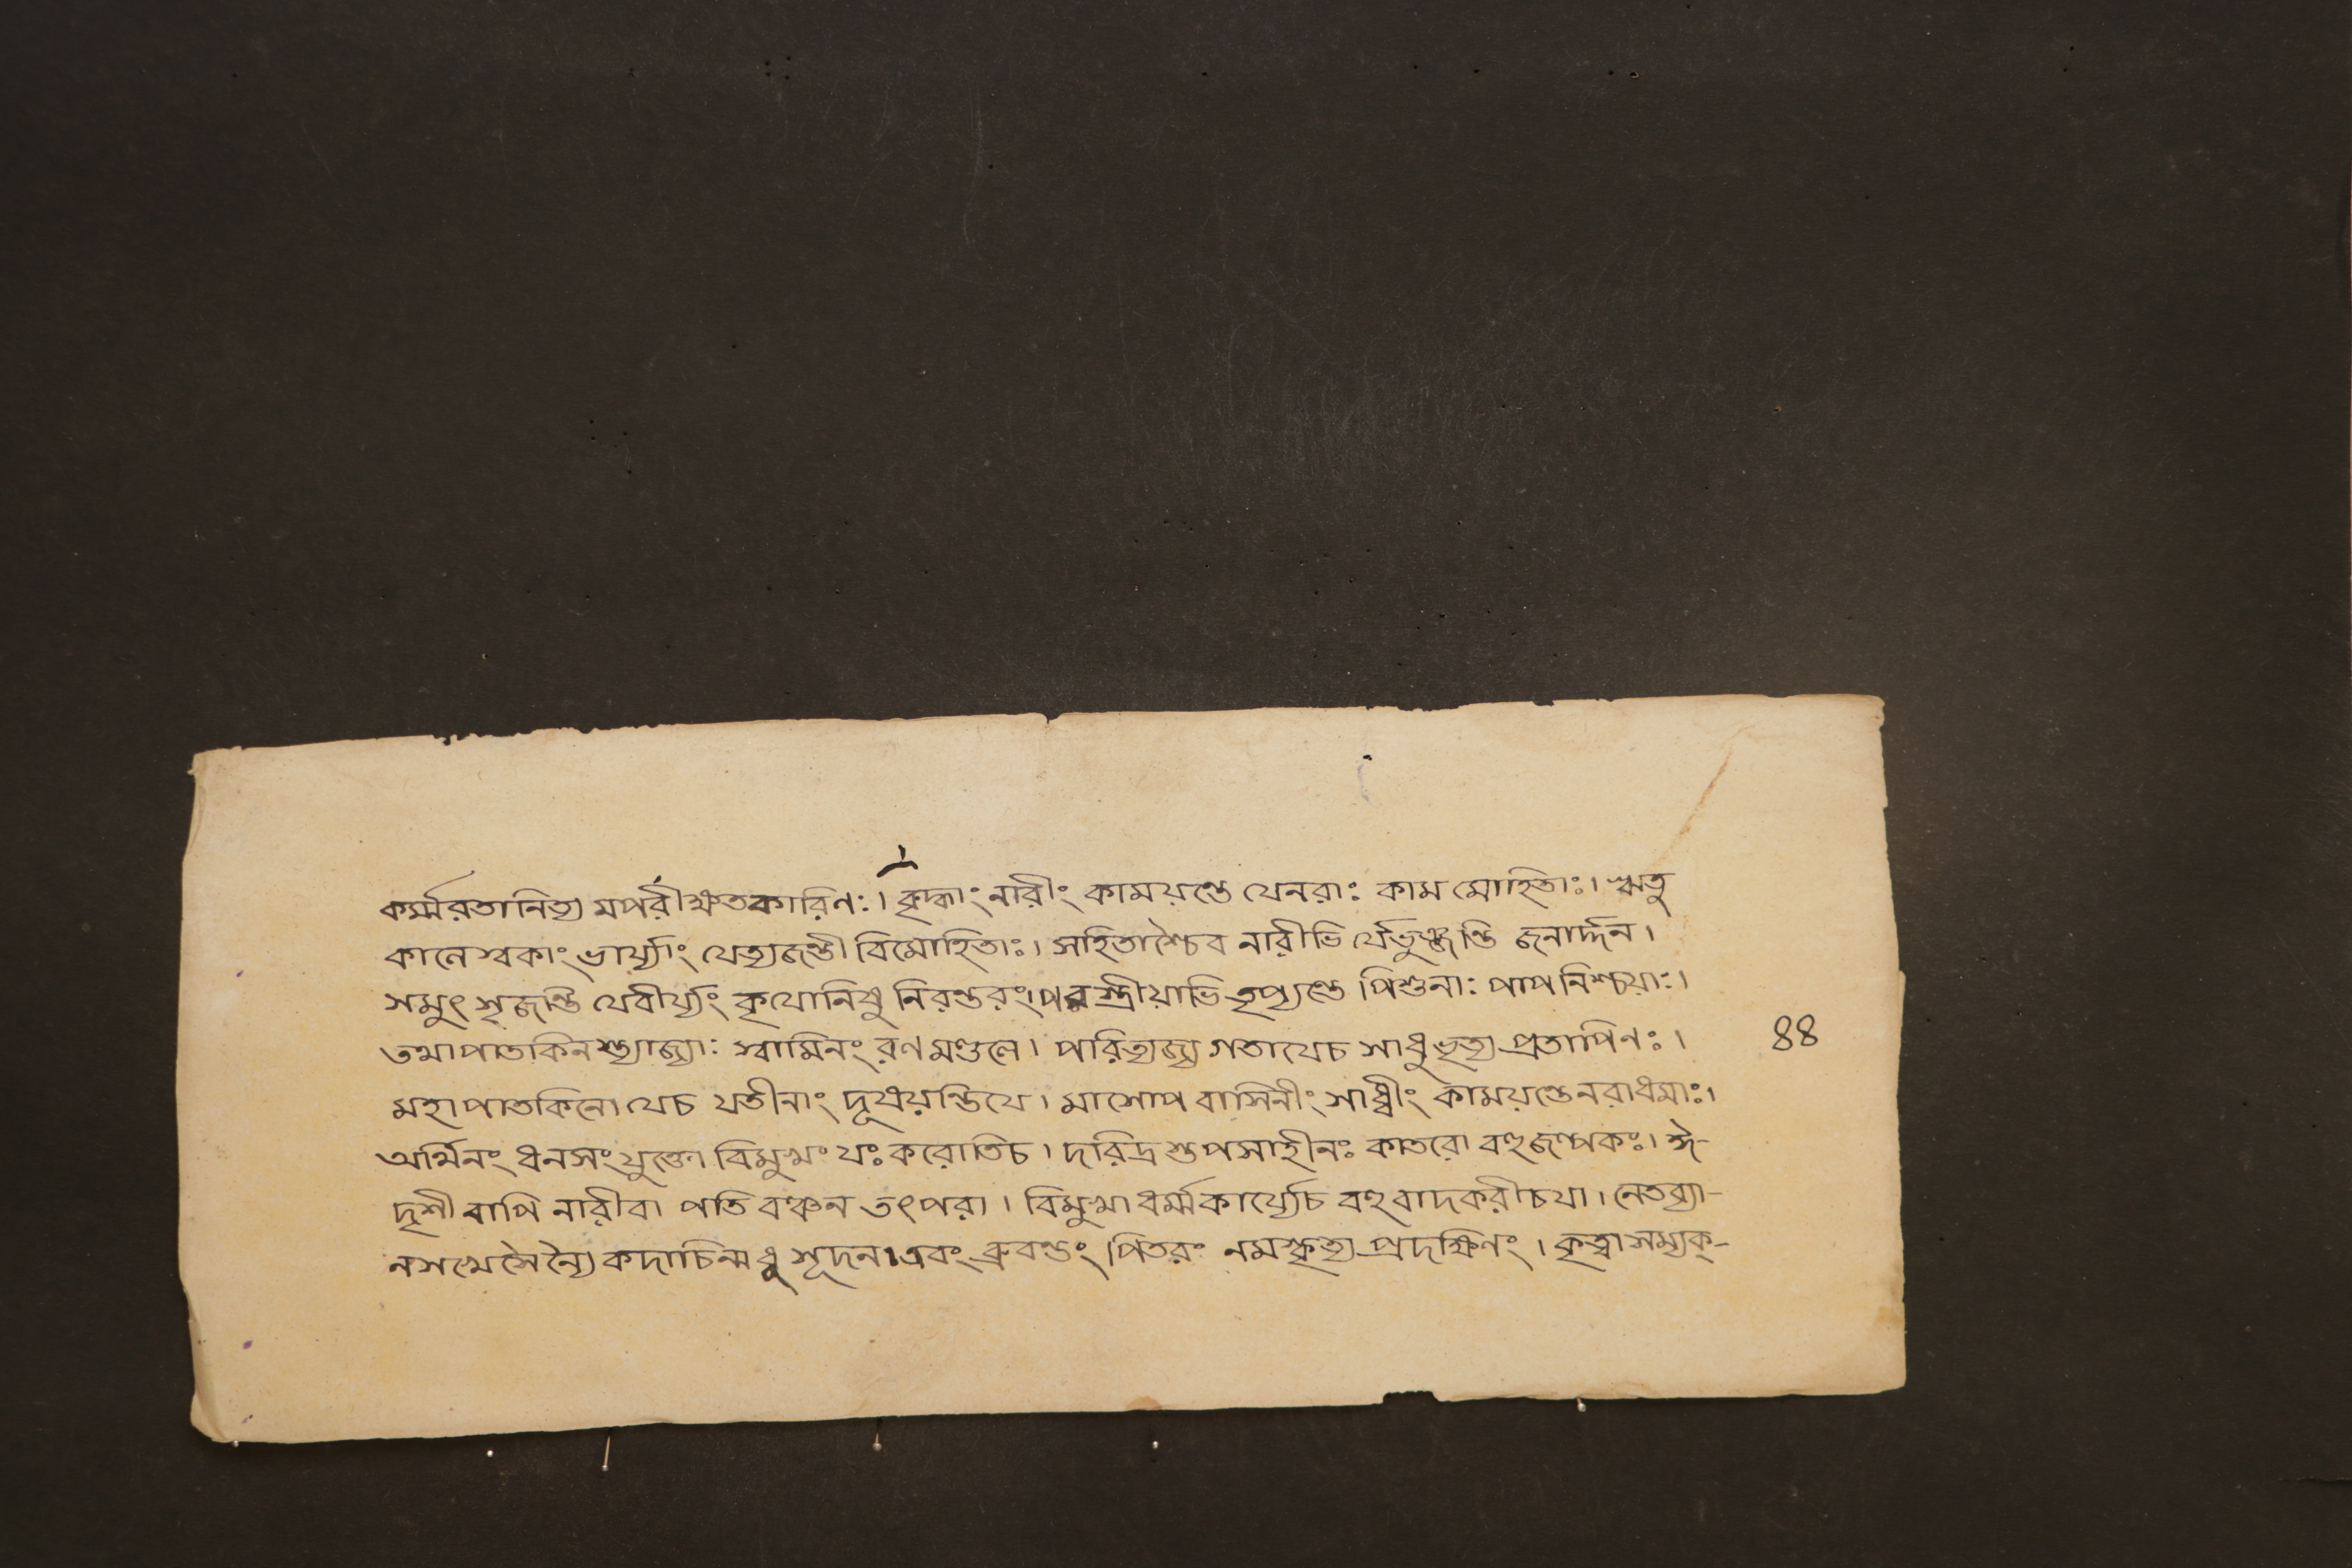 কর্ম্মরতানিত্য মপরীক্ষতকারিণঃ। বৃদ্ধাং নারীং কাময়ন্তে যেনরাঃ কাম মোহিতাঃ। ঋতু
কালে স্বকাং ভার্য্যাং যেত্যজন্তী বিমোহিতাঃ। সহিতাশ্চৈব নারীভি র্যেভুঞ্জন্তি জনার্দ্দন।
সমুৎ সৃজন্তি যেবীর্য্যং কৃযোনিষু নিরন্তরং। পরস্ত্রীয়াভি তৃপ্যন্তে পিশুনাঃ পাপ নিশ্চয়াঃ।
তথাপাতকিনশ্ত্যাজ্যাঃ স্বামিনং রণ মণ্ডলে। পরিত্যজ্য গতাযেচ সাধুভৃত্য প্রতাপিনঃ।
৪৪
মহাপাতকিনো যেচ যতীনাং দূষয়ন্তিযে। মাসোপ বাসিনীং সাধ্বীং কাময়ন্তেনরাধমাঃ।
অর্থিনং ধনসংযুক্তো বিমুখং যঃ করোতিচ। দরিদ্র শ্তপসাহীনঃ কাতরো বহুজল্পকঃ। ঈ-
দৃশী বাপি নারীবা পতি বঞ্চন তৎপরা। বিমুখা ধর্ম্মকার্য্যেচ বহুবাদকরীচযা। নেতব্যা-
নসখে সৈন্যৈ কদাচিন্মধু সূদন। এবং ব্রুবন্তং পিতরং নমস্কৃত্য প্রদক্ষিণং। কৃত্বা সম্যক্-